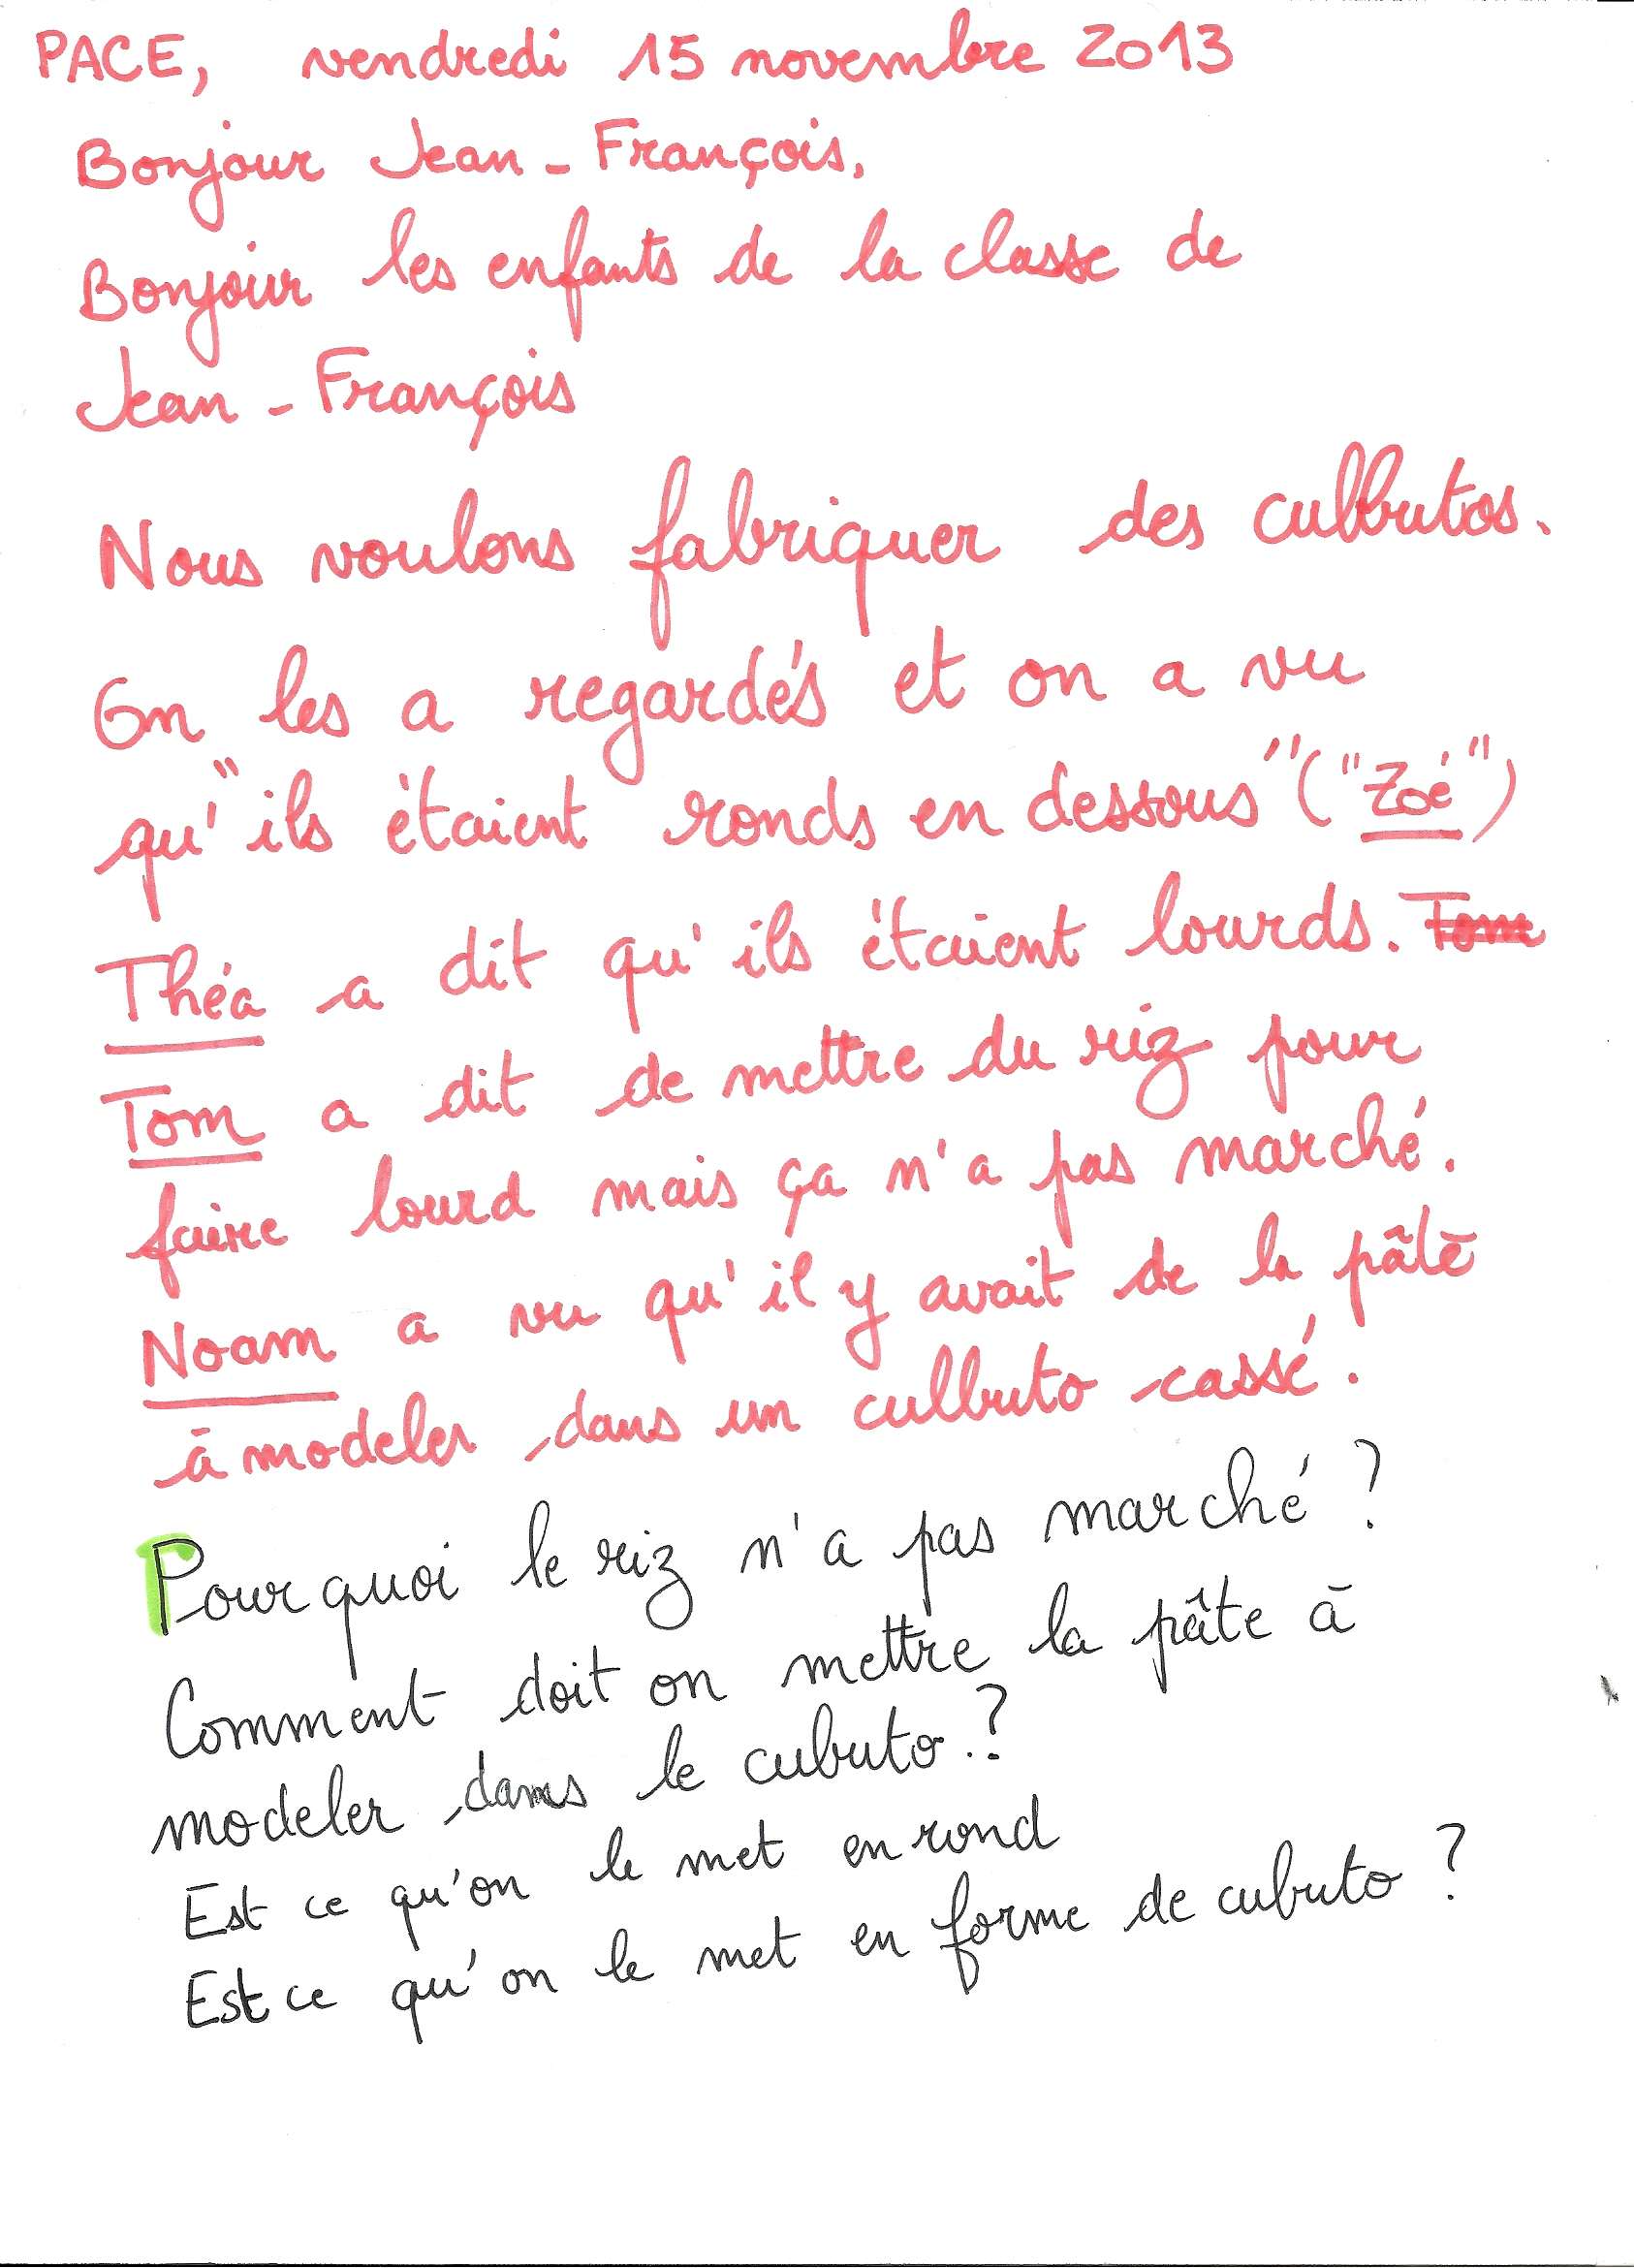 PACE, vendredi 15 novembre 2013
Bonjour Jean-François,
Bonjour les enfants de la classe de
Jean-François
Nous voulons fabriquer des culbutos.
On les a regardés et on a vu
qu'"ils étaient ronds en dessous" ("Zoé")
Théa a dit qu'ils étaient lourds. Tom
Tom a dit de mettre du riz pour
faire lourd mais ça n'a pas marché.
Noam a vu qu'il y avait de la pâte
à modeler dans un culbuto cassé.
Pourquoi le riz n'a pas marché ?
Comment doit on mettre la pâte à
modeler dans le cubuto.?
Est ce qu'on le met en rond
Est ce qu'on le met en forme de cubuto ?